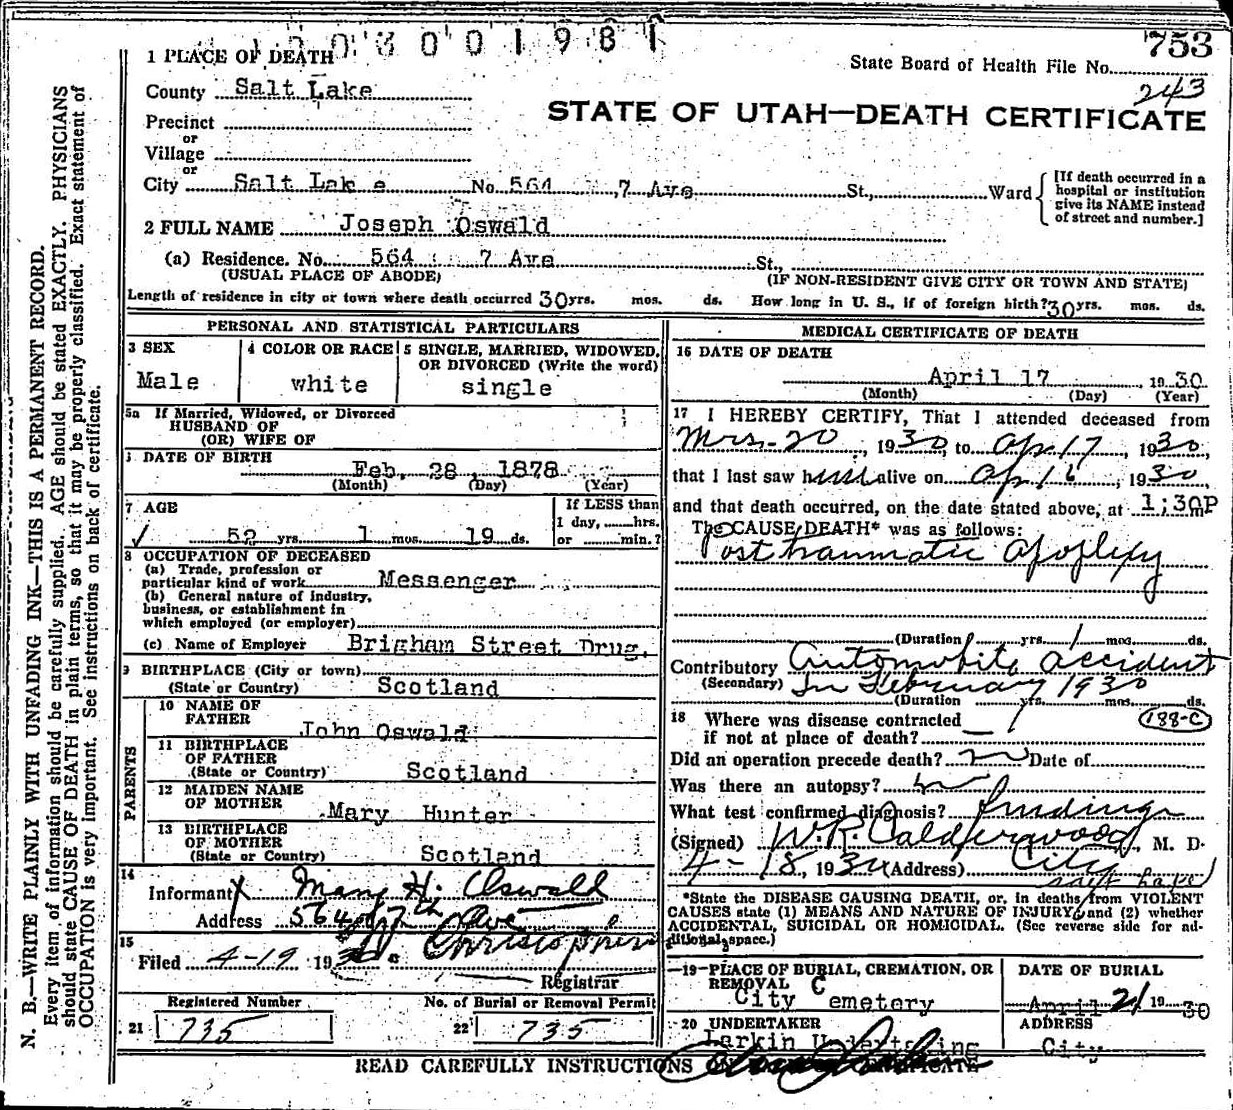 1 2 0 3 0 0 1 9 8 1
753
1 PLACE OF DEATH
State Board of Health File No.
243
County Salt Lake
STATE OF UTAH—DEATH CERTIFICATE
Precinct
or
Village
or
City Salt Lake No. 564 7 Ave St., Ward
[If death occurred in a hospital or institution give its NAME instead of street and number.]
2 FULL NAME Joseph Oswald
(a) Residence. No. 564 7 Ave St.,
(USUAL PLACE OF ABODE) (IF NON-RESIDENT GIVE CITY OR TOWN AND STATE)
Length of residence in city or town where death occurred 30 yrs. mos. ds. How long in U. S., if of foreign birth? 30 yrs. mos. ds.
PERSONAL AND STATISTICAL PARTICULARS
3 SEX
Male
4 COLOR OR RACE
white
5 SINGLE, MARRIED, WIDOWED, OR DIVORCED (Write the word)
single
5a If Married, Widowed, or Divorced
HUSBAND OF
(OR) WIFE OF
DATE OF BIRTH
Feb. 28, 1878
(Month) (Day) (Year)
7 AGE
52 yrs. 1 mos. 19 ds.
If LESS than
1 day, hrs.
or min.?
8 OCCUPATION OF DECEASED
(a) Trade, profession or
particular kind of work Messenger
(b) General nature of industry,
business, or establishment in
which employed (or employer)
(c) Name of Employer Brigham Street Drug.
9 BIRTHPLACE (City or town)
(State or Country) Scotland
PARENTS
10 NAME OF
FATHER John Oswald
11 BIRTHPLACE
OF FATHER
(State or Country) Scotland
12 MAIDEN NAME
OF MOTHER Mary Hunter
13 BIRTHPLACE
OF MOTHER
(State or Country) Scotland
14
Informant Mary H. Oswald
Address 564 7th Ave
15
Filed 4-19 1930
Registrar
Registered Number
21 735
No. of Burial or Removal Permit
22 735
MEDICAL CERTIFICATE OF DEATH
16 DATE OF DEATH
April 17, 1930
(Month) (Day) (Year)
17 I HEREBY CERTIFY, That I attended deceased from
20, 1930, to Apr 17, 1930,
that I last saw h alive on Apr 16, 1930
and that death occurred, on the date stated above, at 1:30P m
The CAUSE DEATH* was as follows:
Post traumatic apoplexy
(Duration) yrs. 1 mos. ds.
Contributory Automobile accident
(Secondary) In February 1930
(Duration yrs. mos. ds.
18 Where was disease contracted
if not at place of death?
188-C
Did an operation precede death? no Date of
Was there an autopsy? no
What test confirmed diagnosis? findings
(Signed) W.R. Calderwood, M. D.
4-18, 1930 (Address) City
Salt Lake
*State the DISEASE CAUSING DEATH, or, in deaths from VIOLENT
CAUSES state (1) MEANS AND NATURE OF INJURY, and (2) whether
ACCIDENTAL, SUICIDAL OR HOMICIDAL. (See reverse side for ad-
ditional space.)
19 PLACE OF BURIAL, CREMATION, OR
REMOVAL
City Cemetery
DATE OF BURIAL
April 21 1930
20 UNDERTAKER
Larkin Undertaking
ADDRESS
City
READ CAREFULLY INSTRUCTIONS CERTIFICATE
N. B.—WRITE PLAINLY WITH UNFADING INK—THIS IS A PERMANENT RECORD.
Every item of information should be carefully supplied. AGE should be stated EXACTLY. PHYSICIANS
should state CAUSE OF DEATH in plain terms, so that it may be properly classified. Exact statement of
OCCUPATION is very important. See instructions on back of certificate.